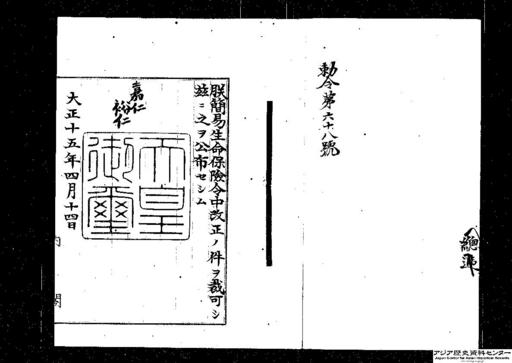 勅令第六十八號
朕簡易生命保險令中改正ノ件ヲ裁可シ
茲ニ之ヲ公布セシム
嘉仁
裕仁
天皇
御璽
大正十五年四月十四日
内閣
アジア歴史資料センター
Japan Center for Asian Historical Records